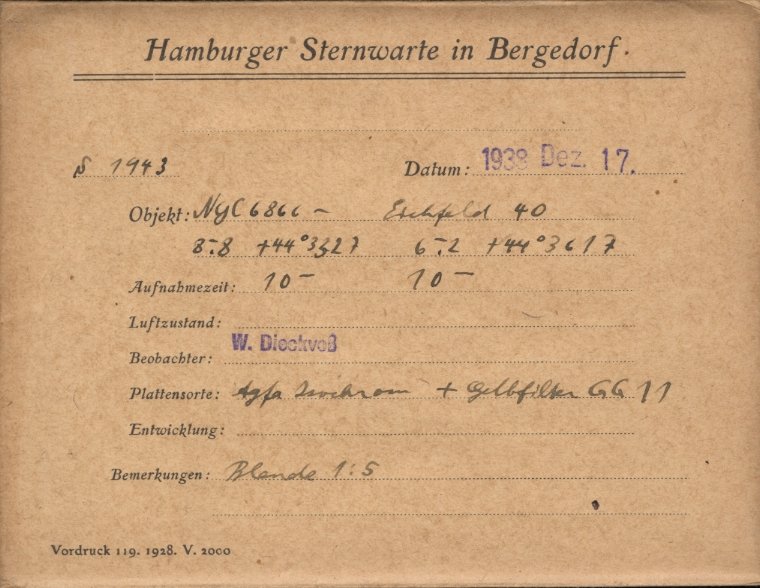 Hamburger Sternwarte in Bergedorf.
S 1943 Datum: 1938 Dez. 17.
Objekt: NGC 6866 — Eichfeld 40
+44° +44°
Aufnahmezeit: 10 — 10 —
Luftzustand:
Beobachter: W. Dieckvoß
Plattensorte: Agfa Isochrom + Gelbfilter GG 11
Entwicklung:
Bemerkungen: Blende 1:5
Vordruck 119. 1928. V. 2000